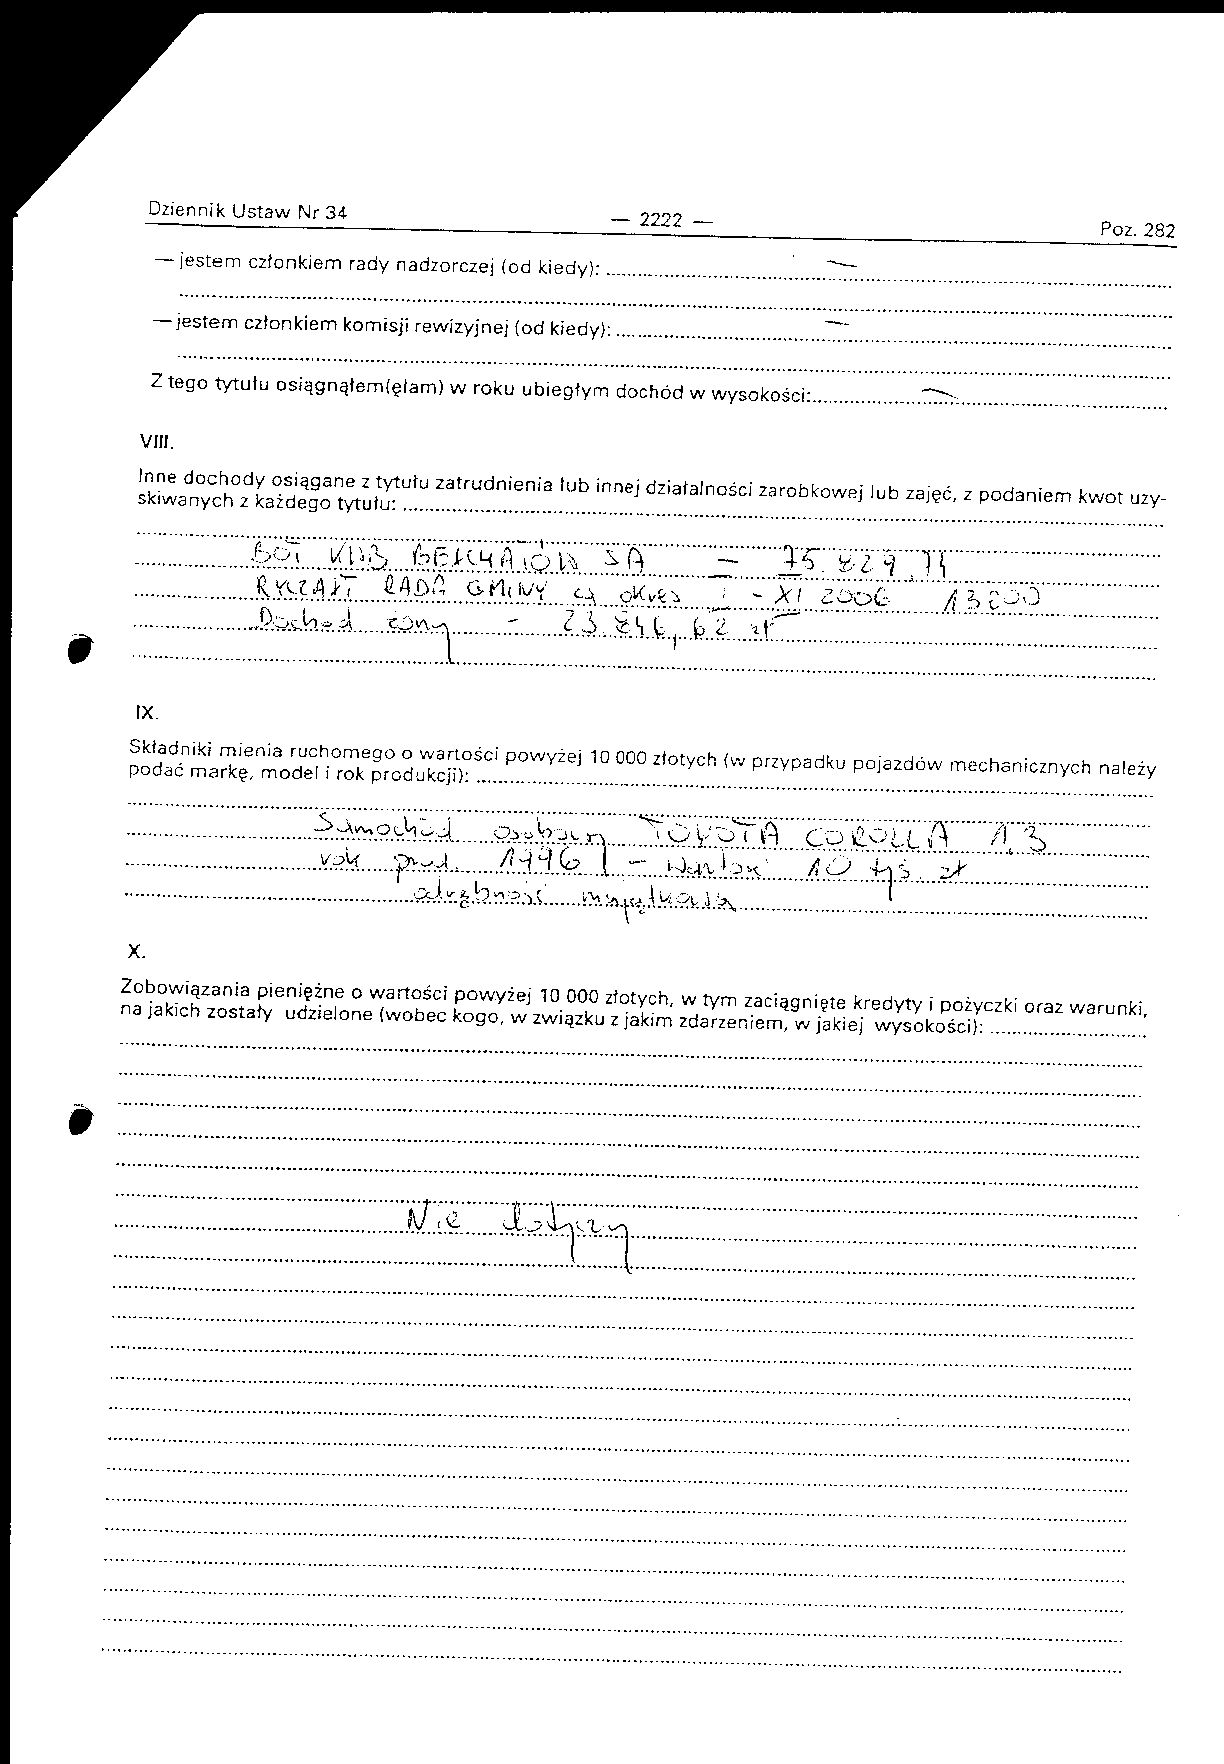 Dziennik Ustaw Nr 34 — 2222 — Poz. 282
— jestem członkiem rady nadzorczej (od kiedy): —
— jestem członkiem komisji rewizyjnej (od kiedy): —
Z tego tytułu osiągnąłem(ęłam) w roku ubiegłym dochód w wysokości: —
VIII.
Inne dochody osiągane z tytułu zatrudnienia lub innej działalności zarobkowej lub zajęć, z podaniem kwot uzy-
skiwanych z każdego tytułu:
BOT KWB BEŁCHATÓW SA — 75.829,71
RYCZAŁT RADA GMINY za okres I - XI 2006 13200
Dochód żony - 23.846,62 zł
IX.
Składniki mienia ruchomego o wartości powyżej 10 000 złotych (w przypadku pojazdów mechanicznych należy
podać markę, model i rok produkcji):
Samochód osobowy TOYOTA COROLLA 1.3
rok prod. 1996 - wartość 10 tyś. zł
odrębność majątkowa
X.
Zobowiązania pieniężne o wartości powyżej 10 000 złotych, w tym zaciągnięte kredyty i pożyczki oraz warunki,
na jakich zostały udzielone (wobec kogo, w związku z jakim zdarzeniem, w jakiej wysokości):
Nie dotyczy